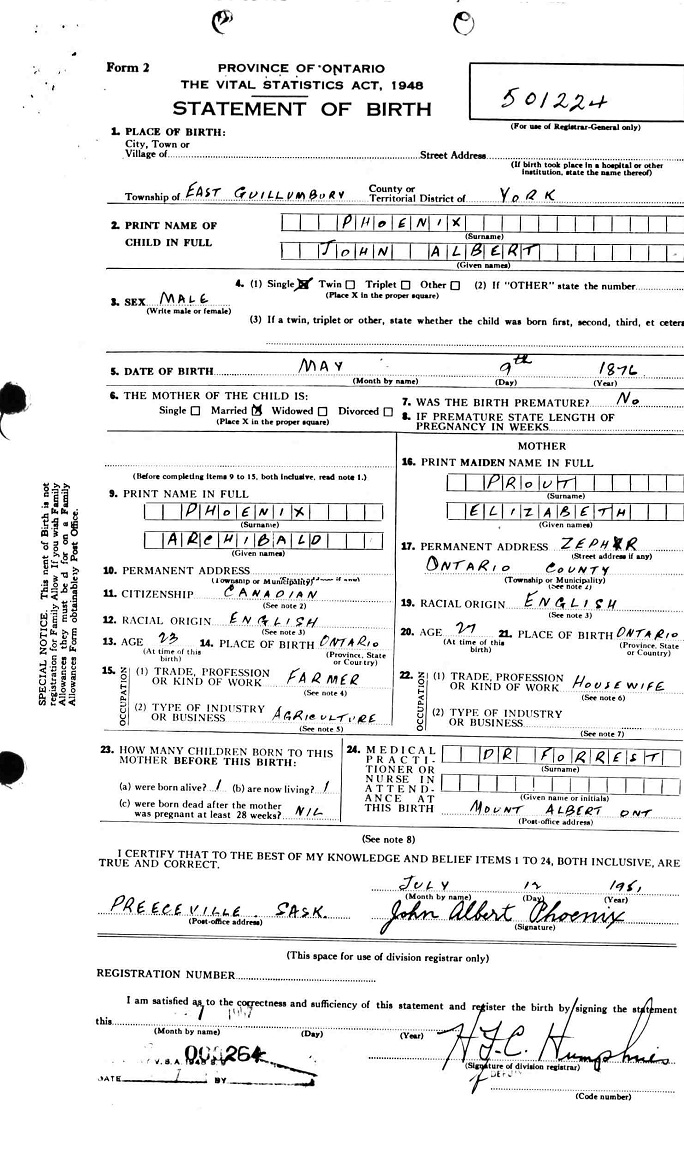 Form 2
PROVINCE OF ONTARIO
THE VITAL STATISTICS ACT, 1948
STATEMENT OF BIRTH
501224
(For use of Registrar-General only)
1. PLACE OF BIRTH:
City, Town or
Village of
Street Address
(If birth took place in a hospital or other
institution, state the name thereof)
Township of EAST GUILLUMBURY County or Territorial District of YORK
2. PRINT NAME OF CHILD IN FULL
PHOENIX
(Surname)
JOHN ALBERT
(Given names)
3. SEX MALE
(Write male or female)
4. (1) Single X Twin Triplet Other (2) If "OTHER" state the number
(Place X in the proper square)
(3) If a twin, triplet or other, state whether the child was born first, second, third, et cetera
5. DATE OF BIRTH MAY 9th 1876
(Month by name) (Day) (Year)
6. THE MOTHER OF THE CHILD IS:
Single Married X Widowed Divorced
(Place X in the proper square)
7. WAS THE BIRTH PREMATURE? No
8. IF PREMATURE STATE LENGTH OF
PREGNANCY IN WEEKS
(Before completing items 9 to 15, both inclusive, read note 1.)
9. PRINT NAME IN FULL
PHOENIX
(Surname)
ARCHIBALD
(Given names)
10. PERMANENT ADDRESS
(Township or Municipality)
11. CITIZENSHIP CANADIAN
(See note 2)
12. RACIAL ORIGIN ENGLISH
(See note 3)
13. AGE 23 14. PLACE OF BIRTH ONTARIO
(At time of this birth) (Province, State or Country)
15. OCCUPATION
(1) TRADE, PROFESSION
OR KIND OF WORK FARMER
(See note 4)
(2) TYPE OF INDUSTRY
OR BUSINESS AGRICULTURE
(See note 5)
MOTHER
16. PRINT MAIDEN NAME IN FULL
PROUT
(Surname)
ELIZABETH
(Given names)
17. PERMANENT ADDRESS ZEPHYR
(Street address if any)
ONTARIO COUNTY
(Township or Municipality)
(See note 2)
19. RACIAL ORIGIN ENGLISH
(See note 3)
20. AGE 21. PLACE OF BIRTH ONTARIO
(At time of this birth) (Province, State or Country)
22. OCCUPATION
(1) TRADE, PROFESSION
OR KIND OF WORK HOUSEWIFE
(See note 6)
(2) TYPE OF INDUSTRY
OR BUSINESS
(See note 7)
23. HOW MANY CHILDREN BORN TO THIS
MOTHER BEFORE THIS BIRTH:
(a) were born alive? 1 (b) are now living? 1
(c) were born dead after the mother
was pregnant at least 28 weeks? NIL
24. MEDICAL
PRACTI-
TIONER OR
NURSE IN
ATTEND-
ANCE AT
THIS BIRTH
DR FORREST
(Surname)
(Given name or initials)
MOUNT ALBERT ONT
(Post-office address)
(See note 8)
I CERTIFY THAT TO THE BEST OF MY KNOWLEDGE AND BELIEF ITEMS 1 TO 24, BOTH INCLUSIVE, ARE
TRUE AND CORRECT.
JULY 12 1951
(Month by name) (Day) (Year)
PREECEVILLE SASK. John Albert Phoenix
(Post-office address) (Signature)
(This space for use of division registrar only)
REGISTRATION NUMBER
I am satisfied as to the correctness and sufficiency of this statement and register the birth by signing the statement
this
(Month by name) (Day) (Year)
H.J.C. Humphries
(Signature of division registrar)
V.S.A. 1948
DATE BY
(Code number)
SPECIAL NOTICE. This nent of Birth is not
registration for Family Allow If you wish Family
Allowances they must be d for on a Family
Allowances Form obtainablety Post Office.